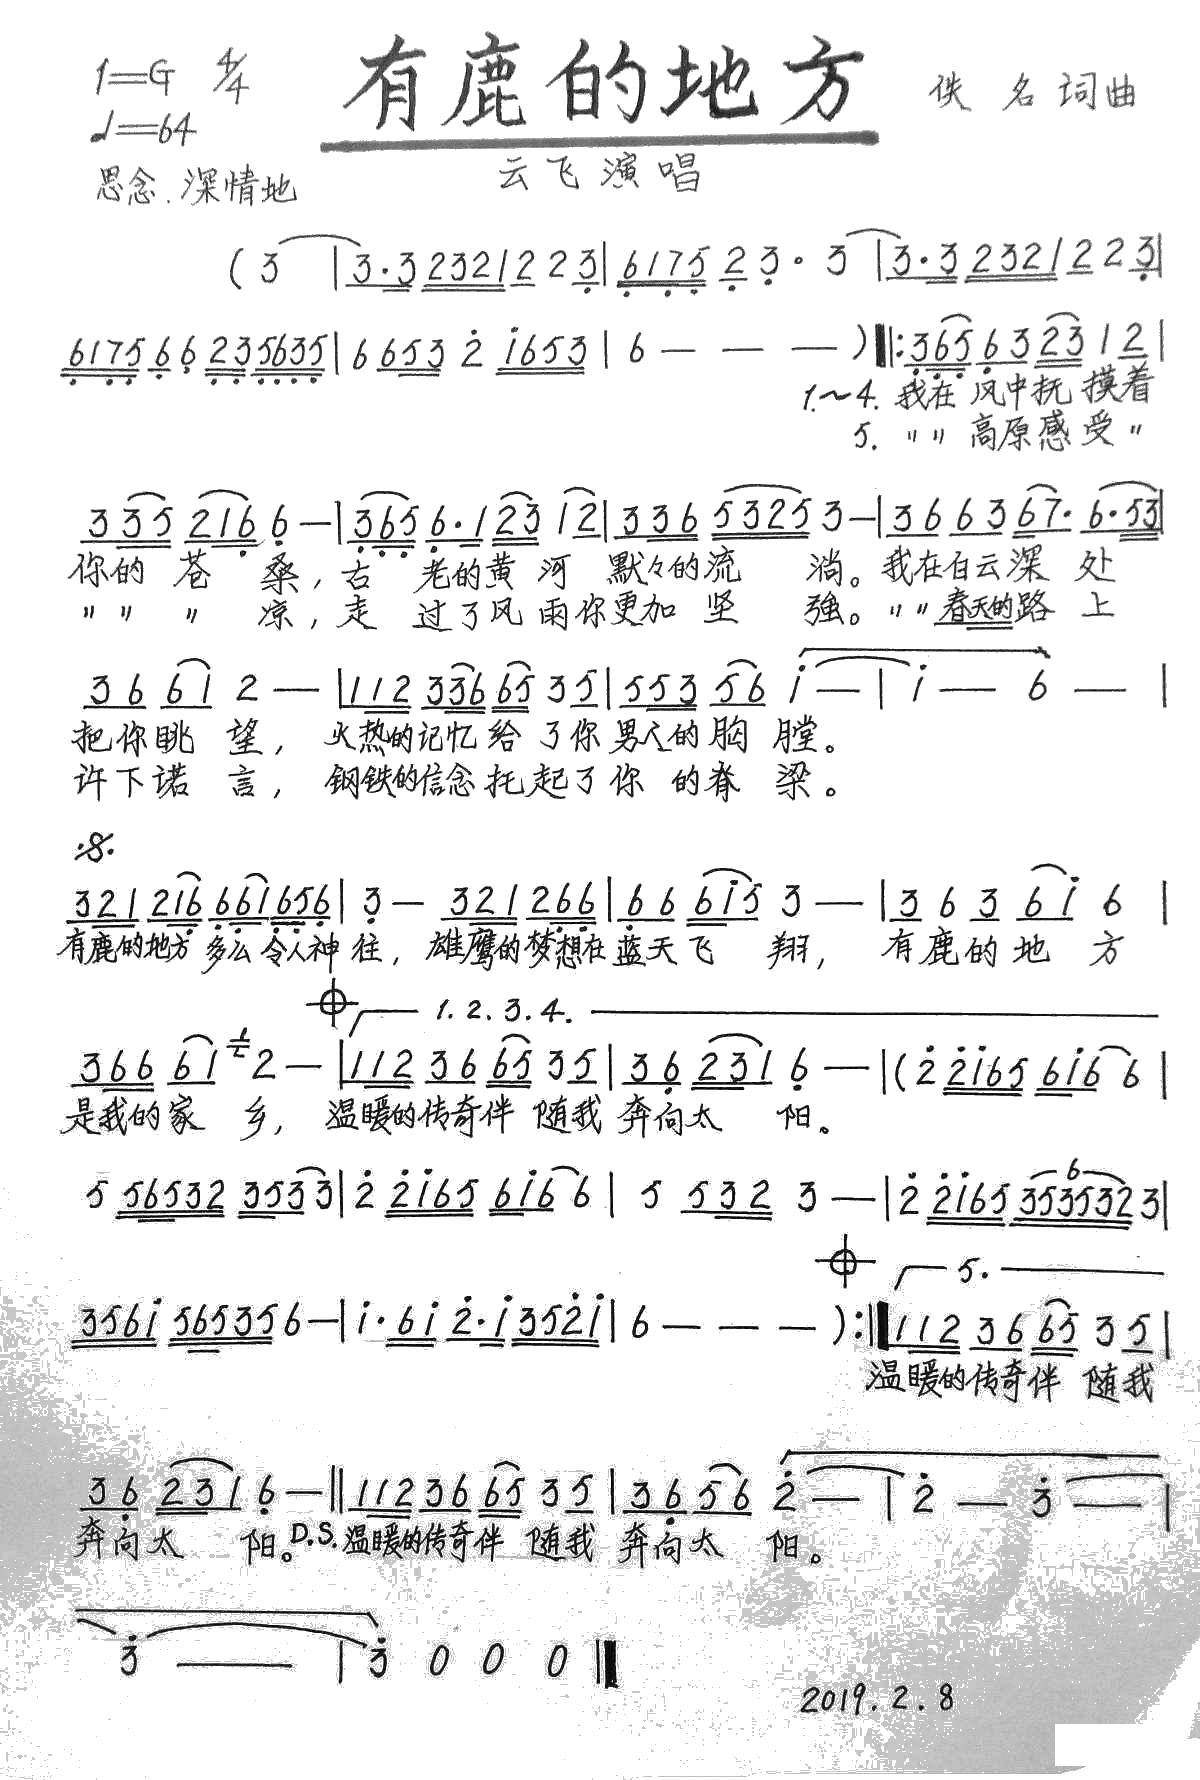 1=G 4/4 有鹿的地方 佚名词曲
♩=64
思念.深情地 云飞演唱
( 3 | 3·3 2321 2 2 3 | 6175 2 3· 3 | 3·3 2321 2 2 3 |
6175 6 6 23 5635 | 6 653 2 1653 | 6 — — — ) ‖: 365 6323 1 2 |
1.~4. 我在风中抚摸着
5. 〃〃高原感受〃
3 35 216 6 — | 365 6·1 23 12 | 336 5325 3 — | 36 63 67· 6·53 |
你的苍桑,古老的黄河默々的流淌。我在白云深处
〃〃〃凉,走过了风雨你更加坚強。〃〃春天的路上
36 61 2 — | 112 336 65 35 | 553 56 1 — | 1 — 6 — |
把你眺望,火热的记忆给了你男人的胸膛。
许下诺言,钢铁的信念托起了你的脊梁。
321 216 661 656 | 3 — 321 266 | 66 615 3 — | 36 3 61 6 |
有鹿的地方多么令人神往,雄鹰的梦想在蓝天飞翔,有鹿的地方
1.2.3.4.
366 61 2 — | 112 36 65 35 | 36 231 6 — | ( 2 2165 616 6 |
是我的家乡,温暖的传奇伴随我奔向太阳。
5 56532 3533 | 2 2165 616 6 | 5 532 3 — | 2 2165 353532 3 |
5.
3561 565356 — | 1·61 2·1 3521 | 6 — — — ) :‖ 112 36 65 3 5 |
温暖的传奇伴随我
36 231 6 — ‖ 112 36 65 35 | 36 56 2 — | 2 — 3 — |
奔向太阳。D.S.温暖的传奇伴随我奔向太阳。
3 — | 3 0 0 0 ‖
2019.2.8